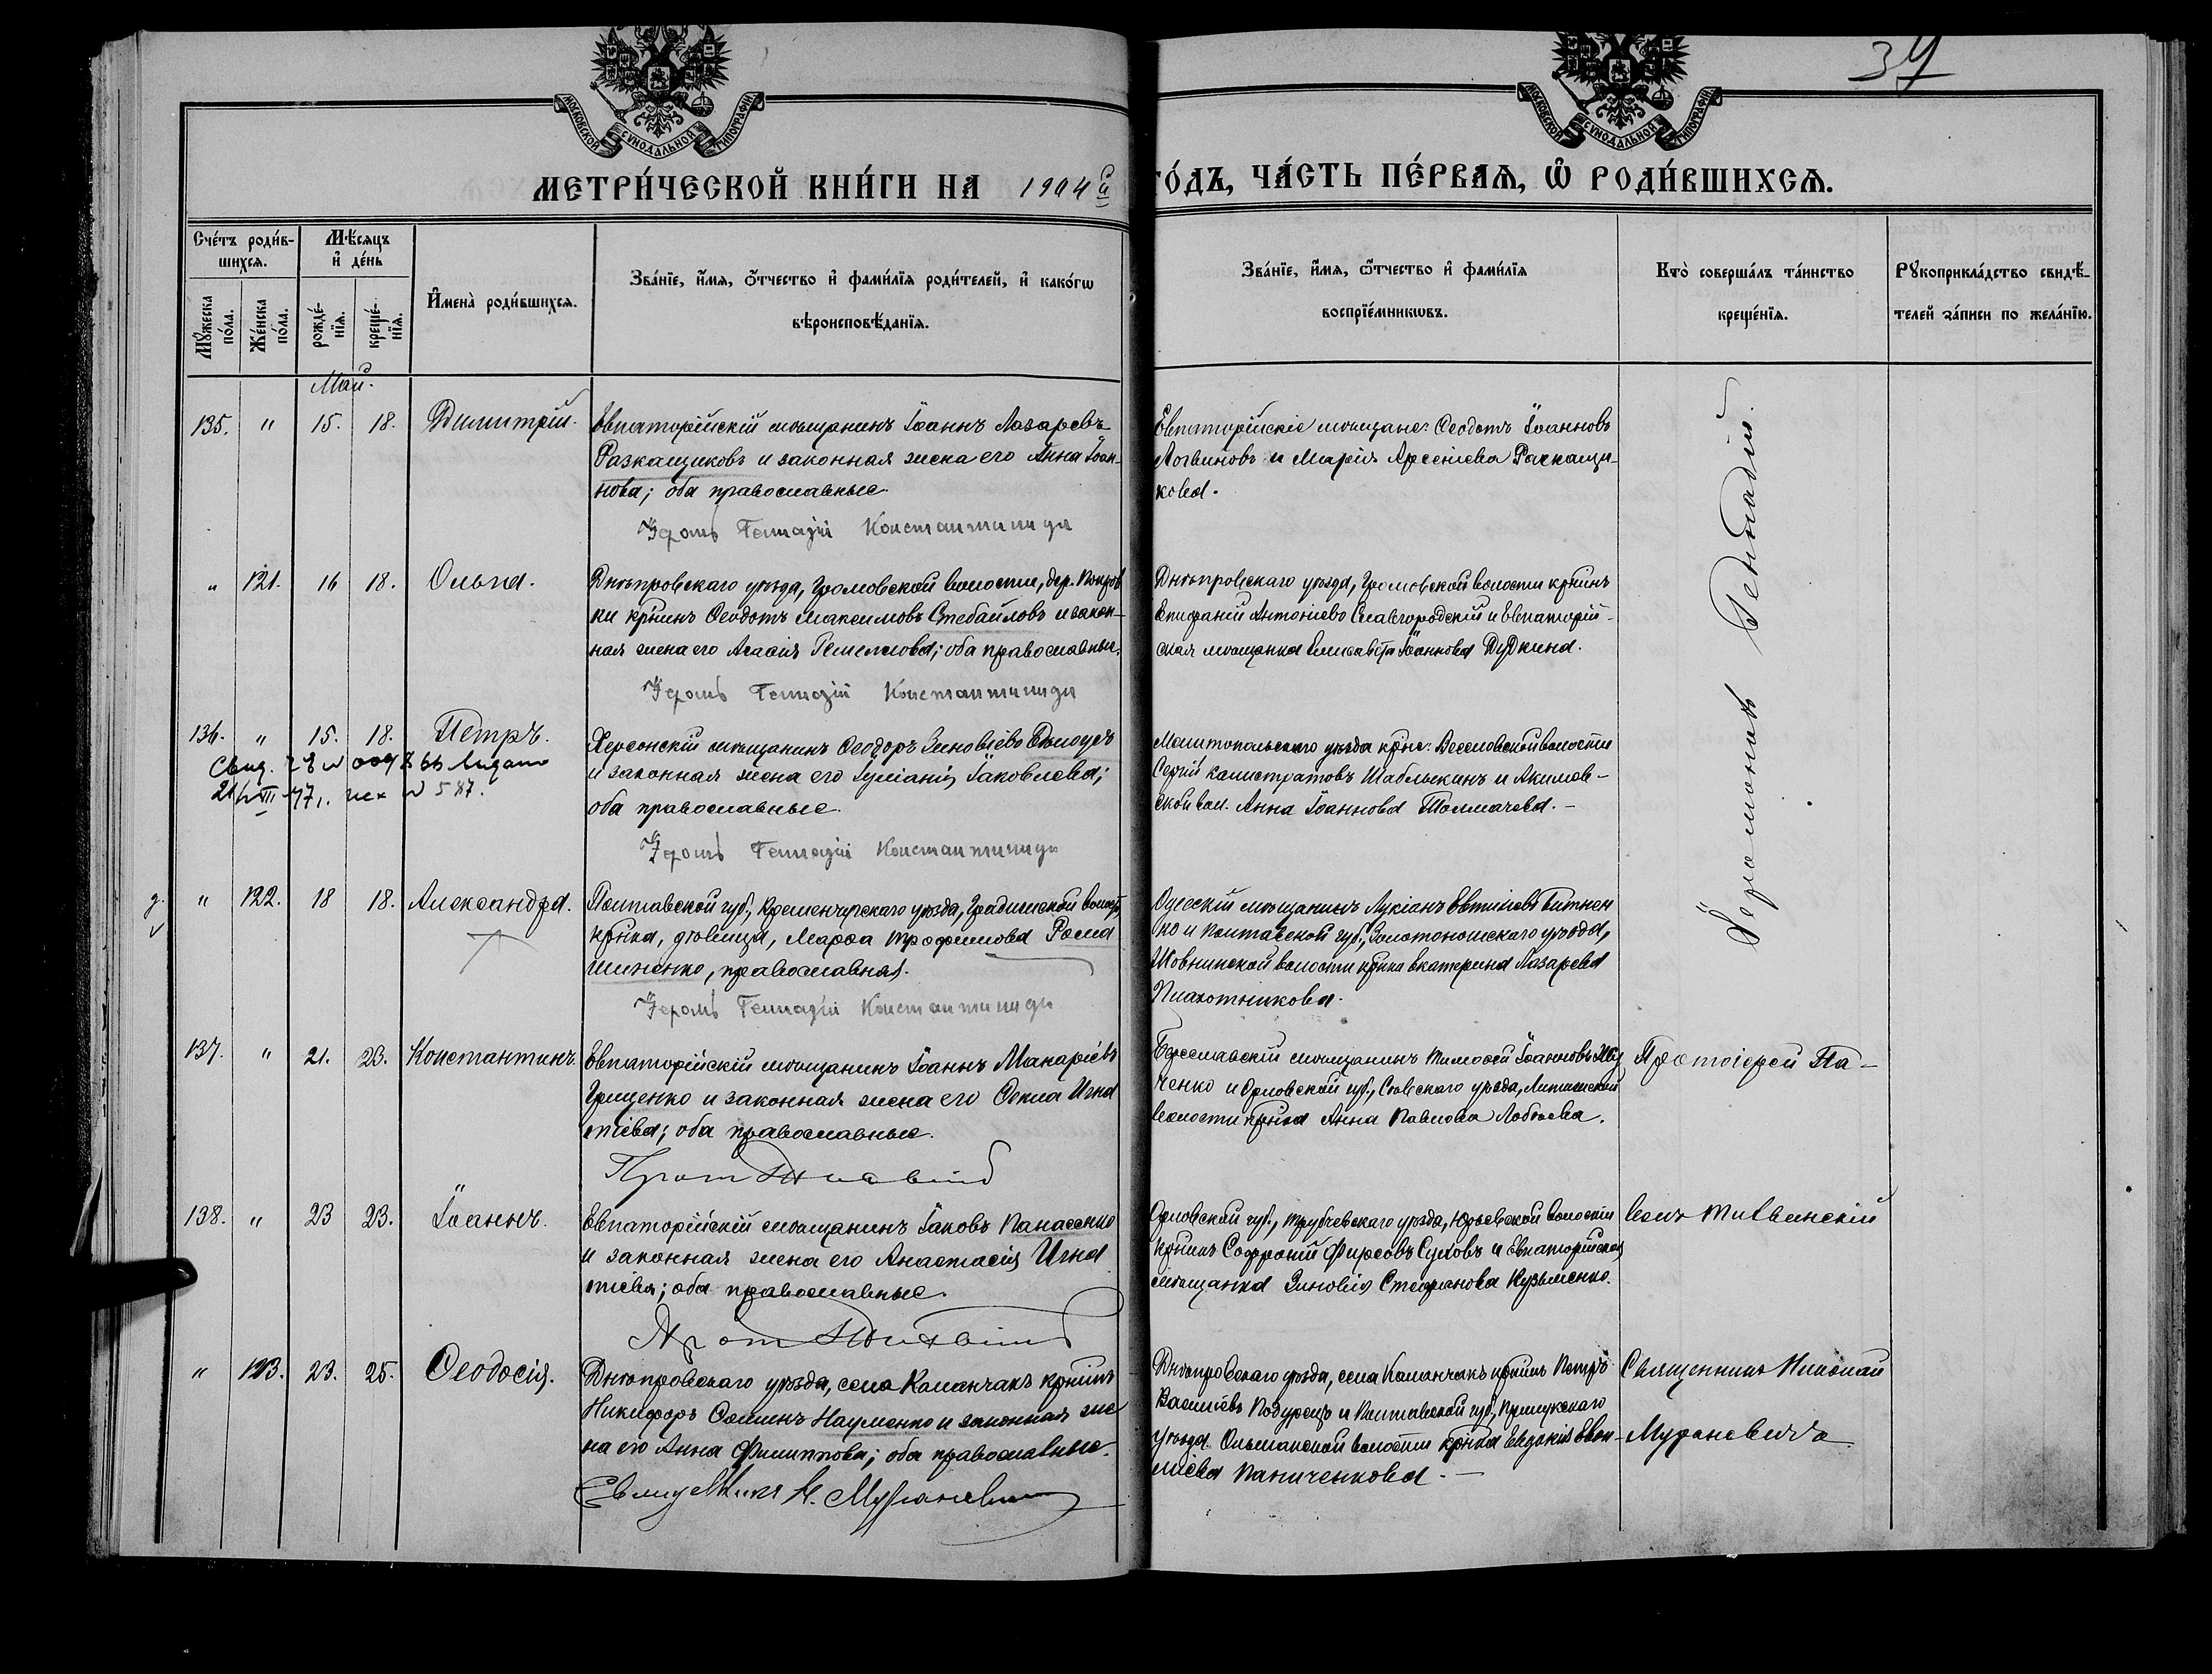 37
МОСКОВСКОЙ СѴНОДАЛЬНОЙ ТИПОГРАФІИ
МОСКОВСКОЙ СѴНОДАЛЬНОЙ ТИПОГРАФІИ
МЕТРИ́ЧЕСКОЙ КНИ́ГИ НА 1904й
ГО́ДЪ, ЧА́СТЬ ПЕ́РВАЯ, Ѡ҆ РОДИ́ВШИХСЯ.
Сче́тъ роди́в-
шихся.
Мѣ́сяцъ
и҆ де́нь
Мꙋ́жеска по́ла.
Же́нска по́ла.
рожде́-
нїя.
креще́-
нїя.
И҆мена̀ роди́вшихся.
Зва́нїе, и҆́мя, ѻ҆́тчество и҆ фами́лїя роди́телей, и҆ како́гѡ
вѣроисповѣ́данїя.
Зва́нїе, и҆́мя, ѻ҆́тчество и҆ фами́лїя
воспрїе́мникѡвъ.
Кто̀ соверша́лъ та́инство
креще́нїя.
Рꙋкоприкла́дство свидѣ́-
телей за́писи по жела́нїю.
Май.
135. " 15. 18. Димитрій.
Евпаторійскій мѣщанинъ Іоаннъ Лазаревъ
Разкащиковъ и законная жена его Анна Іоан-
нова; оба православные.
Іером Геннадій Константиниди
Евпаторійскіе мѣщане: Ѳеодотъ Іоанновъ
Логвиновъ и Марія Арсеніева Раскащи-
кова.
Іеромонахъ Геннадій.
" 121. 16 18. Ольга.
Днѣпровскаго уѣзда, Громовской волости, дер. Покров
ки крнинъ Ѳеодотъ Максимовъ Стебайловъ и закон-
ная жена его Агасія; оба православные.
Іером Геннадій Константиниди
Днѣпровскаго уѣзда, Громовской волости крнинъ
Епифаній Антоніевъ Славгородскій и Евпаторій-
ская мѣщанка Елисавета Іоаннова Дудкина.
136. " 15. 18. Петръ.
Херсонскій мѣщанинъ Ѳеодоръ Зиновіевъ Бѣлоусъ
и законная жена его Іуліанія Іаковлева;
оба православные.
Іером Геннадій Константиниди
Мелитопольскаго уѣзда крне: Веселовской волости
Сергій Калистратовъ Шаблыкинъ и Акимов-
ской вол. Анна Іоаннова Толмачева.
" 122. 18 18. Александра.
Полтавской губ., Кременчугскаго уѣзда, Градижской волости
крнка, дѣвица, Марѳа Трофимова Рома
шиненко, православная.
Іером Геннадій Константиниди
Одесскій мѣщанинъ Лукіанъ Евтихіевъ Битнен
ко и Полтавской губ., Золотоношскаго уѣзда,
волости крнка Екатерина Лазарева
Плахотникова.
137. " 21. 23. Константинъ.
Евпаторійскій мѣщанинъ Іоаннъ Макаріевъ
Грищенко и законная жена его Ѳекла Игна
тіева; оба православные.
Бериславскій мѣщанинъ Тимоѳей Іоанновъ
ченко и Орловской губ., Сѣвскаго уѣзда,
волости крнка Анна Павлова.
Протоіерей Па-
138. " 23 23. Іоаннъ.
Евпаторійскій мѣщанинъ Іаковъ Панасенко
и законная жена его Анастасія Игна
тіева; оба православные.
Орловской губ., Трубчевскаго уѣзда, Юрьевской волости
крнинъ Софроній Фирсовъ Суховъ и Евпаторійская
мѣщанка Зиновія Стефанова Кузьменко.
велъ Тихвинскій
" 123. 23. 25. Ѳеодосія.
Днѣпровскаго уѣзда, села Каланчакъ крнинъ
Никифоръ Ѳоминъ Науменко и законная же
на его Анна Филиппова; оба православные.
Днѣпровскаго уѣзда, села Каланчакъ крнинъ Петръ
Василіевъ и Полтавской губ., Прилукскаго
уѣзда Ольшанской волости крнка Евдокія
Паниченкова.
Священникъ Николай
Мурановичъ